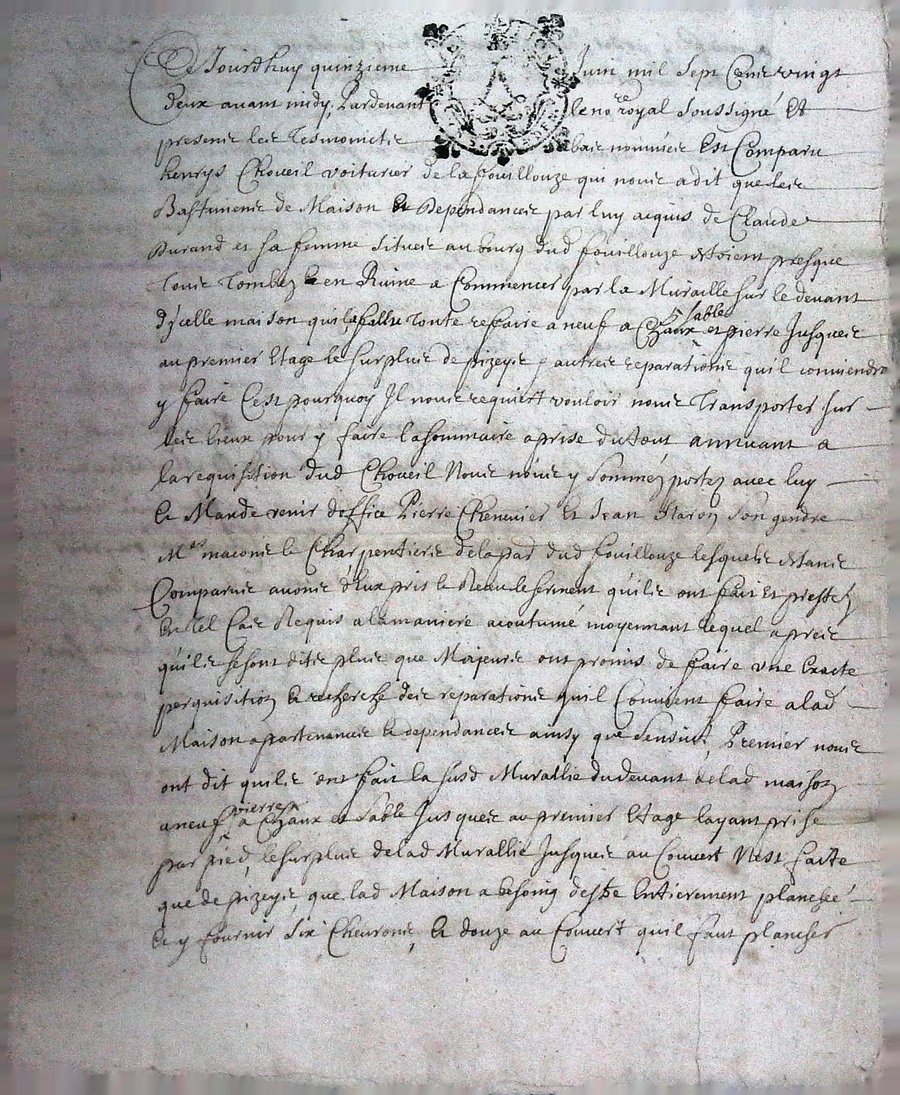 Ce Jourdhuy quinzieme Juin mil Sept Cent vingt
deux avant midy, Pardevant le no.re royal Soussigné Et
presents les Tesmoints bas nommés Est Comparu
henrys Choveil voiturier de la fouillouze qui nous a dit que les
Bastiments de Maison Et Dependances par luy acquis de Claude
Durand et sa femme Situés au bourg dud fouillouze Estoient presque
Tous Tombés Et en Ruine a Commencer par la Muraille sur le devant
dycelle maison quil a fallu toute refaire a neuf a Chaux sable et pierre Jusques
au premier Etage le surplus de pizeyt autres reparations quil conviendra
y faire Cest pourquoy Il nous requiert vouloir nous Transporter sur
les lieux pour y faire la sommaire aprise du tout annuant a
la requisition dud Choveil Nous nous y Sommes portez avec luy
Et Mandé venir doffice Pierre Chenevier Et Jean Staron son gendre
M.es maçons Et Charpentiers de la par. dud fouillouze lesquels Estants
Comparus avons deux pris Et Receu le serment quils ont fait Et presté
En tel Cas Requis a la maniere acoutumé moyennant lequel apres
quils se sont dits plus que Majeurs ont promis de faire une Exacte
perquisition Et recherche des reparations quil Convient faire a lad
Maison appartenances Et dependances ainsy que sensuit Premier nous
ont dit quils ont fait la susd Murallie du devant de lad maison
a neuf a pierre Chaux et Sable Jusques au premier Etage layant prise
par pied, le surplus de lad Murallie Jusques au Couvert Nest faite
que de pizeyt, que lad Maison a besoing destre Entierement planchée
Et y fournir Six Chevrons, Et douze au Couvert quil faut plancher